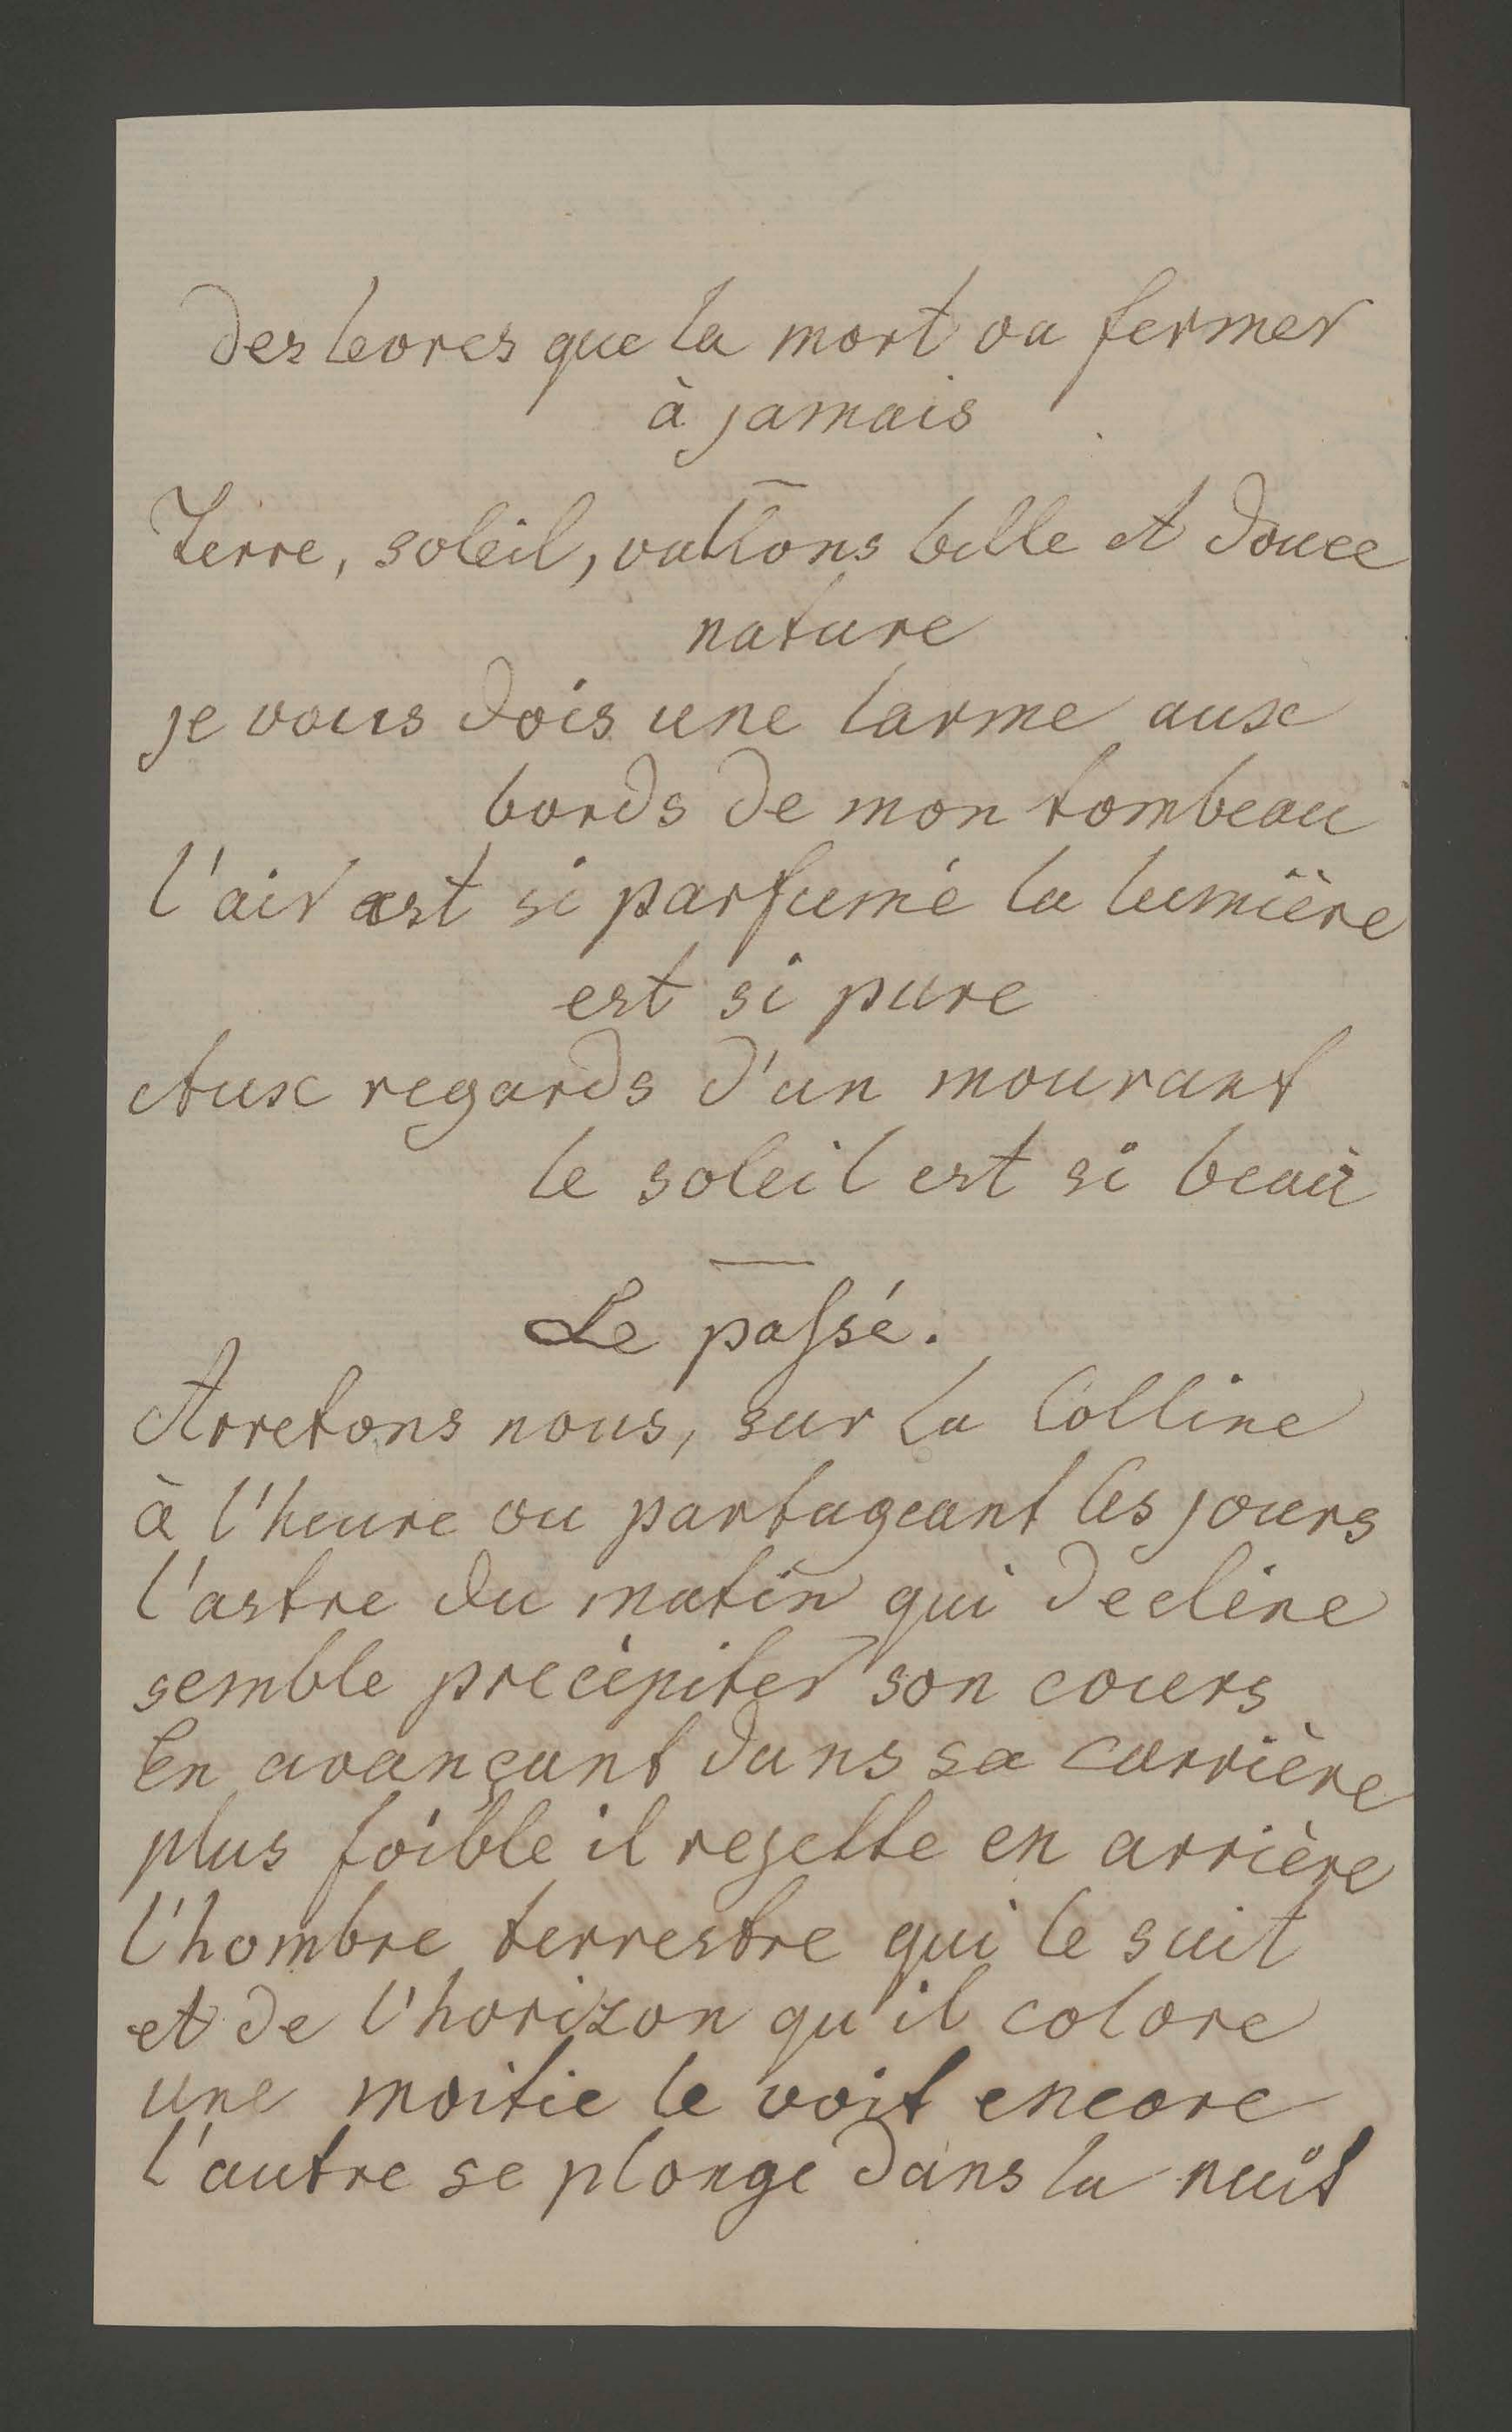 des levres que la mort va fermer
à jamais
Terre, soleil, vallons belle et douce
nature
je vous dois une larme aux
bords de mon tombeau
l'air est si parfumé la lumière
est si pure
Aux regards d'un mourant
le soleil est si beau
Le passé.
Arretons nous, sur la colline
à l'heure ou partageant les jours
l'astre du matin qui decline
semble précipiter son cours
En avançant dans sa carrière
plus foible il rejette en arrière
l'hombre terrestre qui le suit
et de l'horizon qu'il colore
une moitie le voit encore
l'autre se plonge dans la nuit